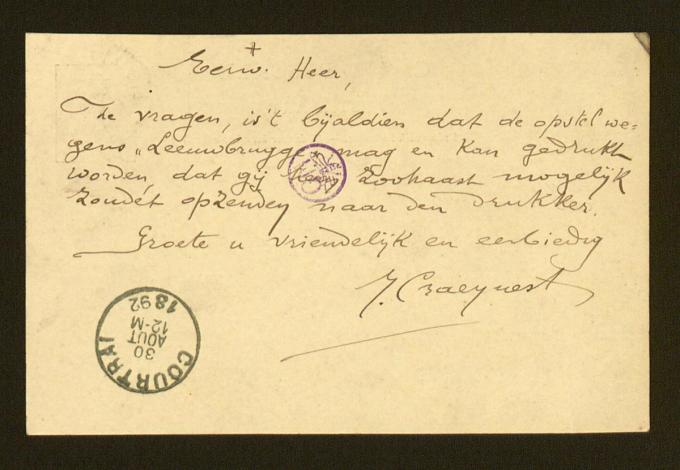 +
Eerw. Heer,
Te vragen, is 't bijaldien dat de opstel we=
gens „Leeuwbrugge" mag en kan gedrukt
worden dat gij zoohaast mogelijk
zoudét opzenden naar den drukker.
Groete u vriendelijk en eerbiedig
J. Craeynest
COURTRAI
30
AOUT
12-M
1892